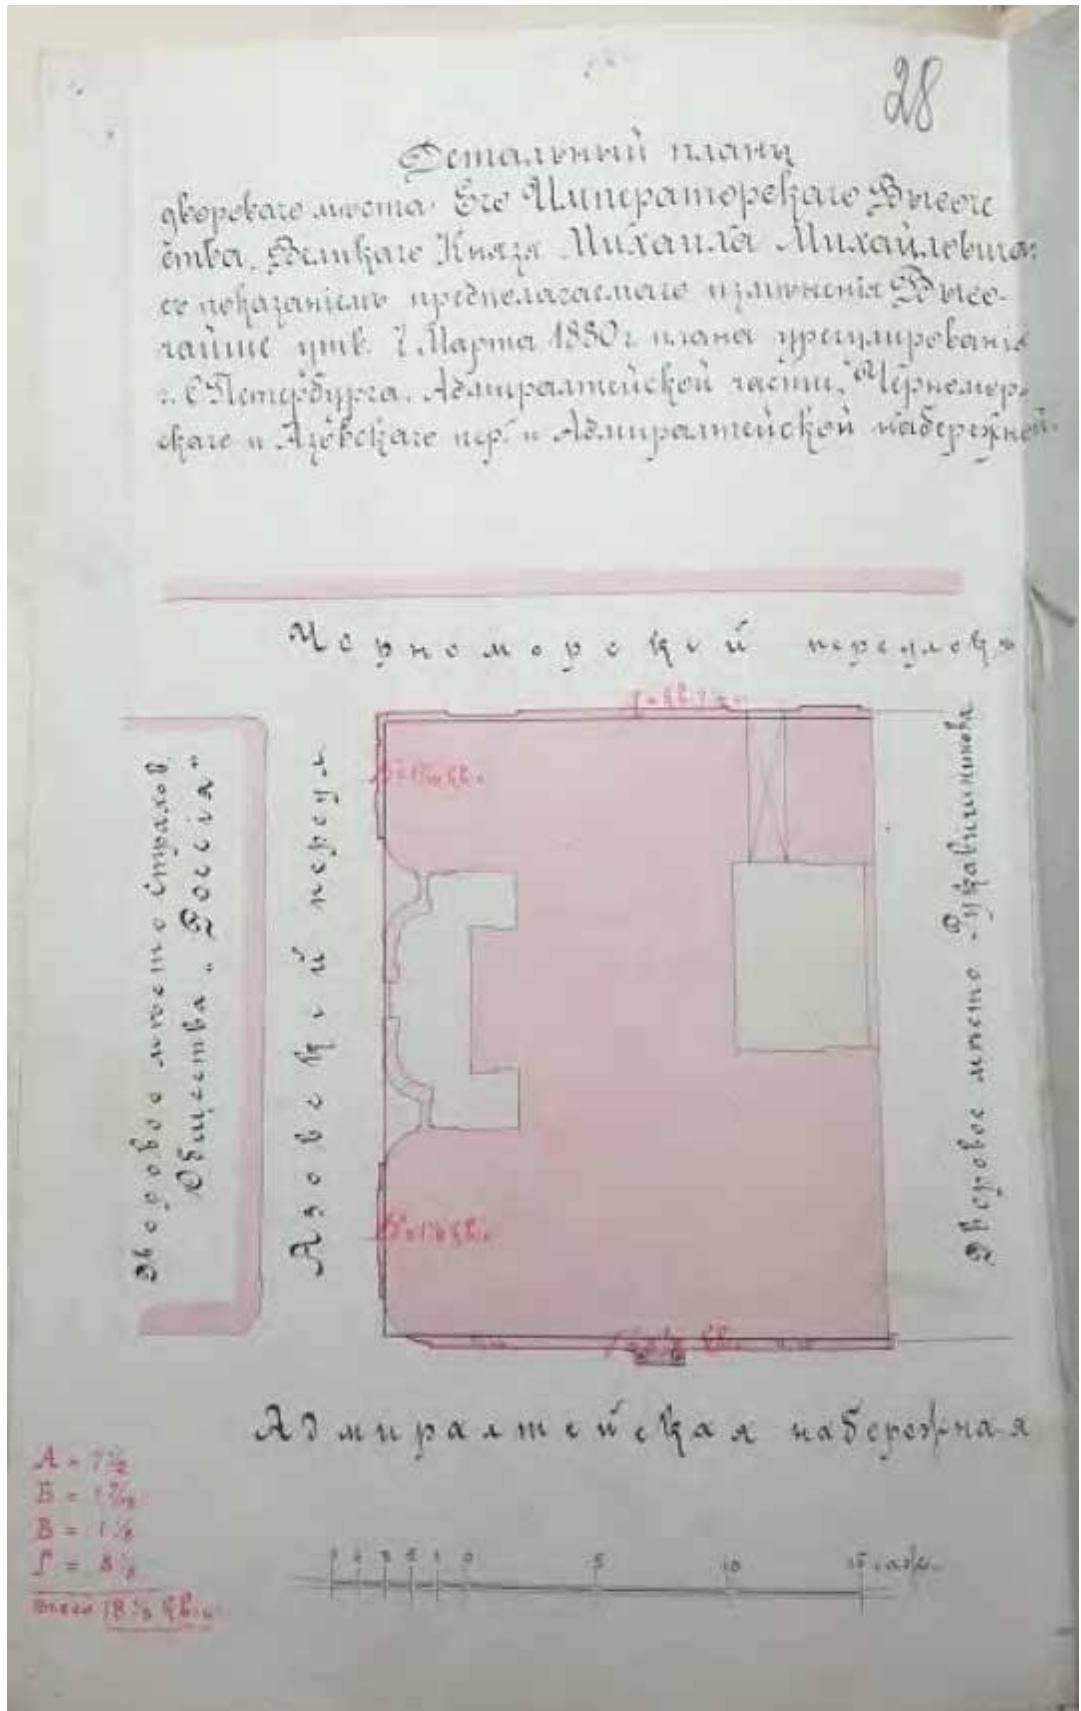 28
Детальный планъ
двороваго мѣста Его Императорскаго Высоче
ства, Великаго Князя Михаила Михайловича
съ показаніемъ предполагаемаго измѣненія Высо-
чайше утв. 7 Марта 1880 г. плана урегулированія
г. С Петербурга, Адмиралтейской части, Черномор-
скаго и Азовскаго пер. и Адмиралтейской набережной.
Черноморскій переулокъ
Дворовое мѣсто страхов.
Общества „Россія“
Азовскій переул
Дворовое мѣсто Рукавишникова
Адмиралтейская набережная
А =
Б =
В =
Г = 8
всего 18 кв. с.
5 10 15 саж.